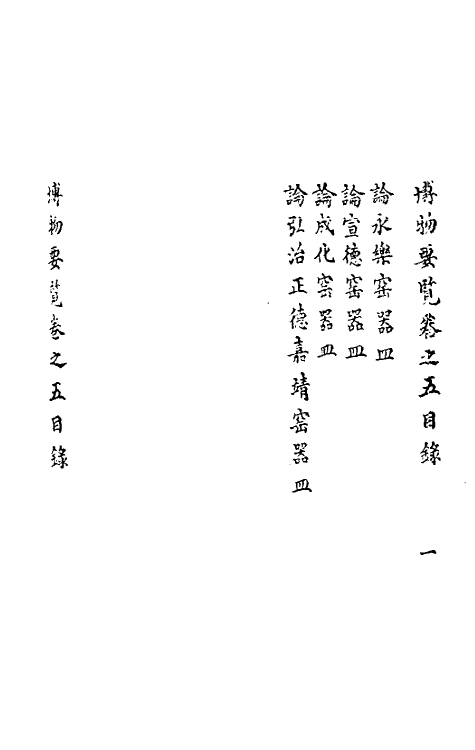 博物要覽卷之五目錄 一
論永樂窑器皿
論宣德窑器皿
論成化窑器皿
論弘治正德嘉靖窑器皿
博物要覽卷之五目錄